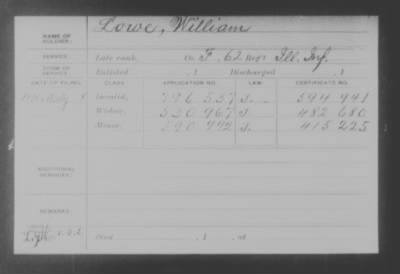 NAME OF SOLDIER: Lowe, William
SERVICE: Late rank, Co. F, 62 Reg't Ill. Inf.
TERM OF SERVICE: Enlisted , 1 Discharged , 1
DATE OF FILING. CLASS. APPLICATION NO. LAW. CERTIFICATE NO.
Invalid, 776 557 J. 594 941
Widow, 530 967 J. 482 680
Minor, 590 992 J. 415 225
ADDITIONAL SERVICES:
REMARKS:
Died , 1 , at